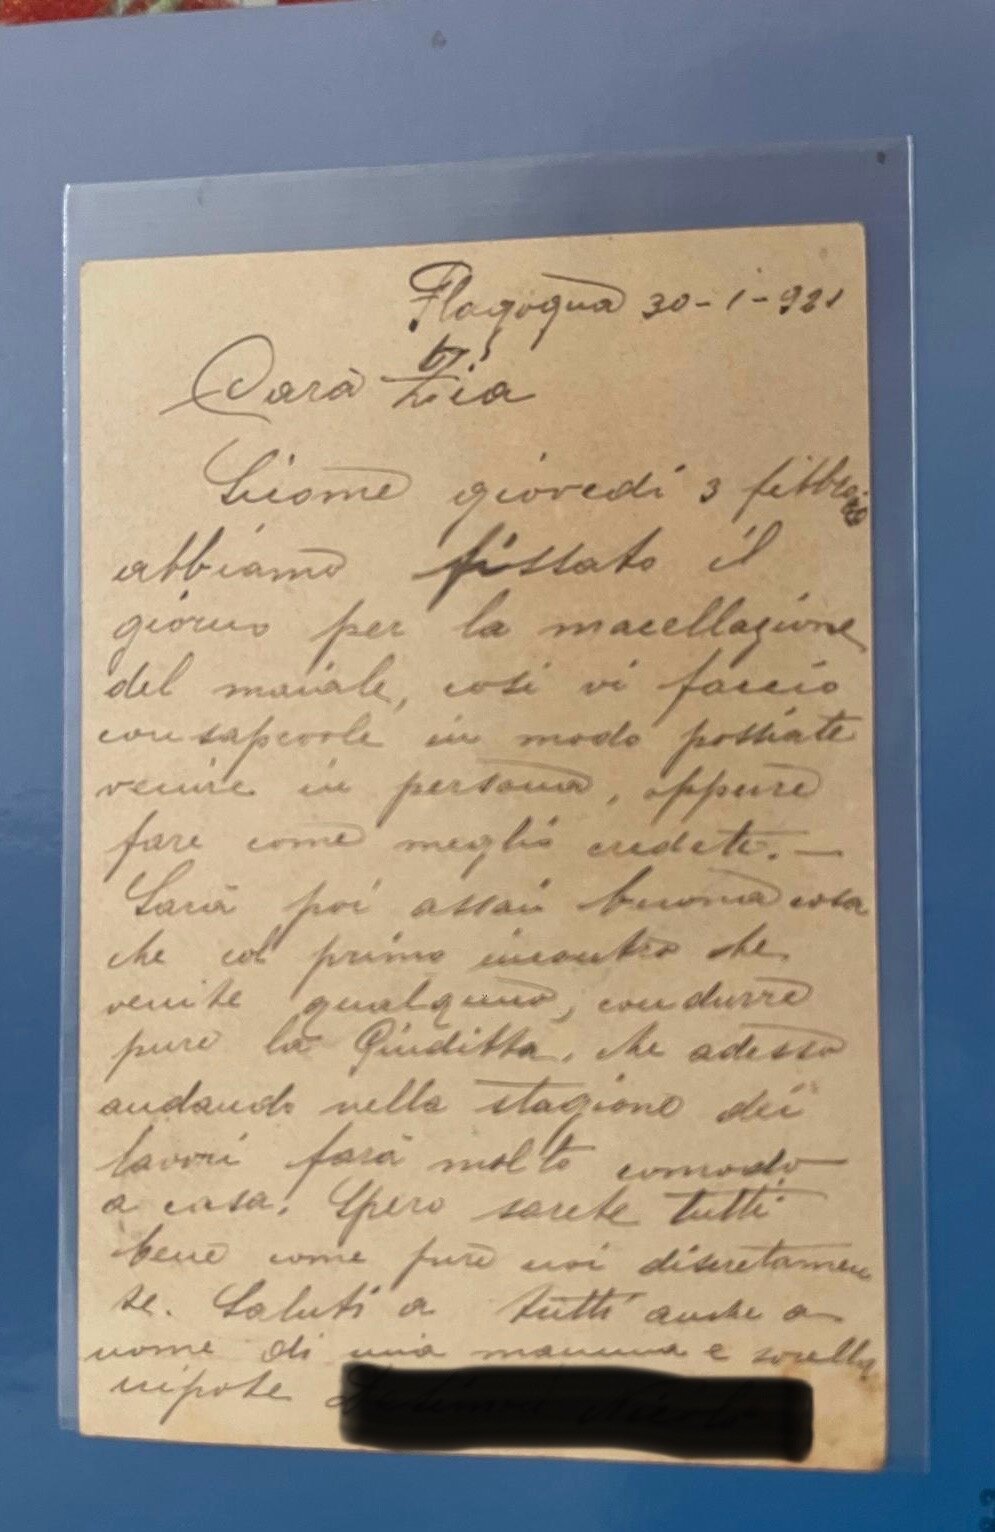 Flagogna 30-1-921
Cara Zia
Siccome giovedì 3 febbraio
abbiamo fissato il
giorno per la macellazione
del maiale, così vi faccio
consapevole in modo possiate
venire in persona, oppure
fare come meglio credete. —
Sarà poi assai buona cosa
che col primo incontro che
venite qualcuno, condurre
pure la Giuditta, che adesso
andando nella stagione dei
lavori farà molto comodo
a casa. Spero sarete tutti
bene come pure noi discretamen
te. Saluti a tutti anche a
nome di mia mamma e sorella
nipote